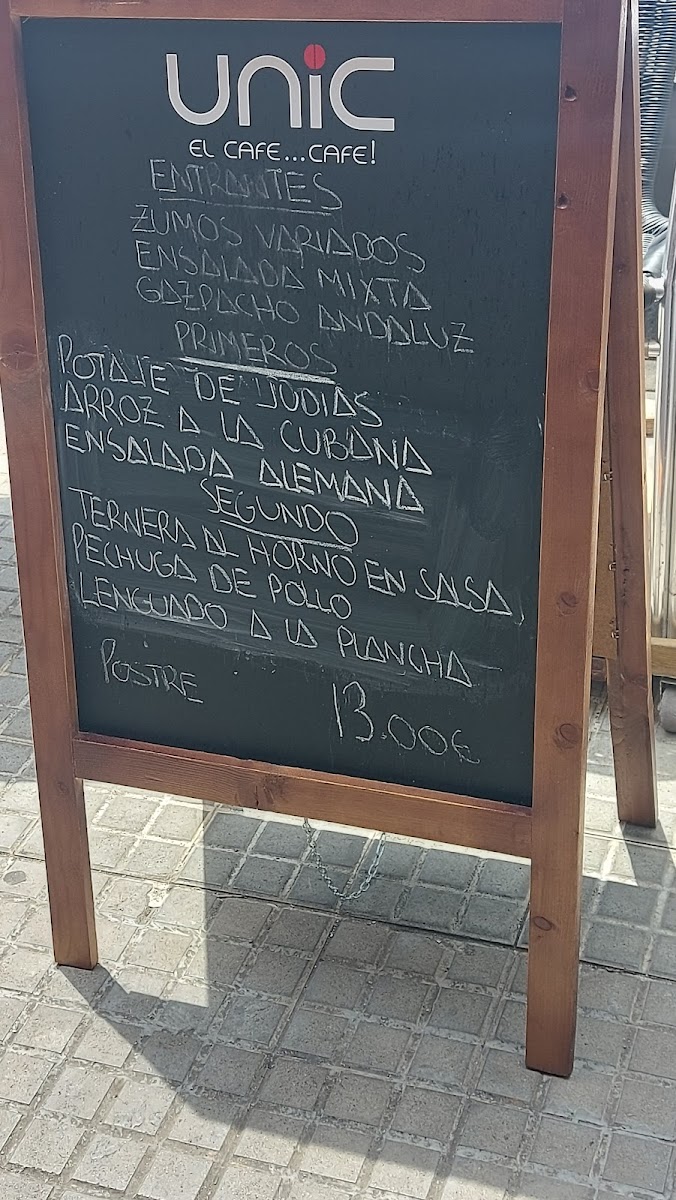 UNIC
EL CAFE...CAFE!
ENTRANTES
ZUMOS VARIADOS
ENSALADA MIXTA
GAZPACHO ANDALUZ
PRIMEROS
POTAJE DE JUDIAS
ARROZ A LA CUBANA
ENSALADA ALEMANA
SEGUNDO
TERNERA AL HORNO EN SALSA
PECHUGA DE POLLO
LENGUADO A LA PLANCHA
POSTRE 13.00€